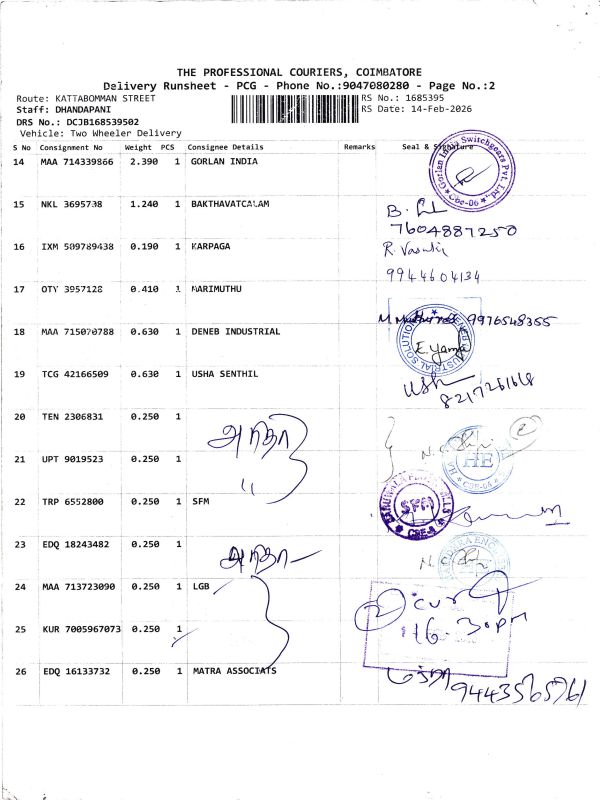 THE PROFESSIONAL COURIERS, COIMBATORE
Delivery Runsheet - PCG - Phone No.:9047080280 - Page No.:2
Route: KATTABOMMAN STREET RS No.: 1685395
Staff: DHANDAPANI RS Date: 14-Feb-2026
DRS No.: DCJB168539502
Vehicle: Two Wheeler Delivery
S No Consignment No Weight PCS Consignee Details Remarks Seal & Signature
14 MAA 714339866 2.390 1 GORLAN INDIA
Gorlan India Switchgears Pvt. Ltd. Cbe-06
15 NKL 3695738 1.240 1 BAKTHAVATCALAM
B.
7604887250
16 IXM 509789438 0.190 1 KARPAGA
R. Vasuki
9944604134
17 OTY 3957128 0.410 1 MARIMUTHU
9976548355
18 MAA 715070788 0.630 1 DENEB INDUSTRIAL
DENEB INDUSTRIAL SOLUTION
E. Yamu
19 TCG 42166509 0.630 1 USHA SENTHIL
Ush
8217261668
20 TEN 2306831 0.250 1
2
21 UPT 9019523 0.250 1
N.C.
HE
CBE-04
22 TRP 6552800 0.250 1 SFM
SFM
CBE-
23 EDQ 18243482 0.250 1
N.C.
24 MAA 713723090 0.250 1 LGB
2
25 KUR 7005967073 0.250 1
6.30pm
26 EDQ 16133732 0.250 1 MATRA ASSOCIATS
9443565761